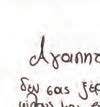 Αγαπητ
δεν σας ξέρ